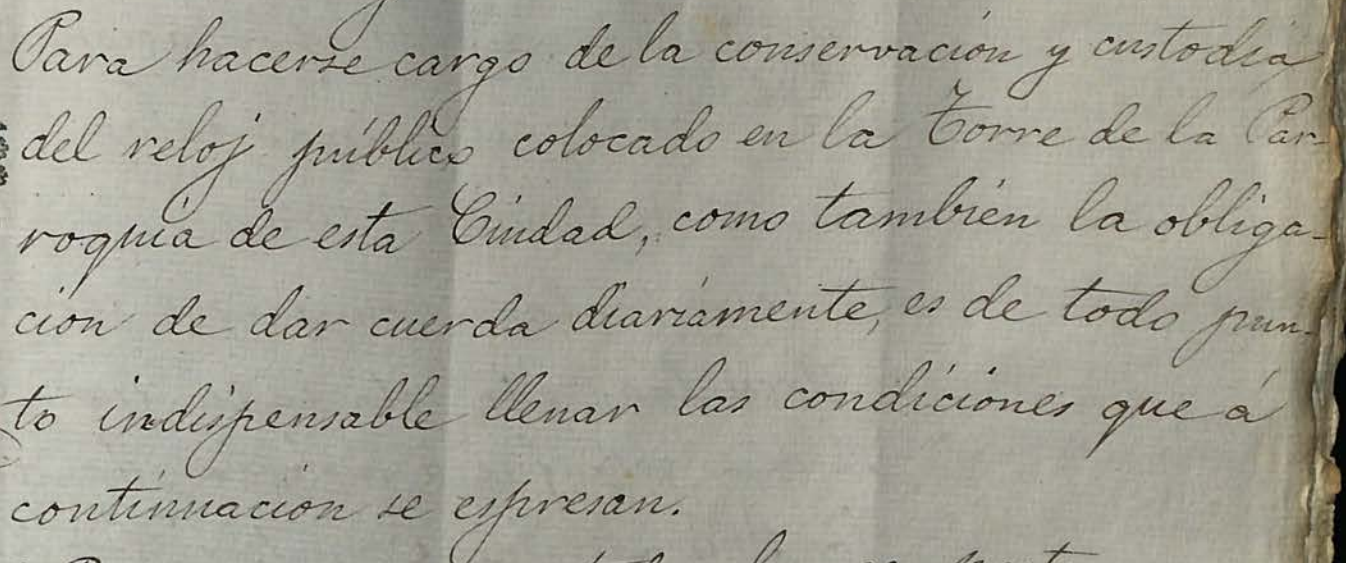 Para hacerse cargo de la conservación y custodia
del reloj público colocado en la Torre de la Par-
roquia de esta Ciudad, como también la obliga-
ción de dar cuerda diariamente, es de todo pun-
to indispensable llenar las condiciones que á
continuación se espresan.